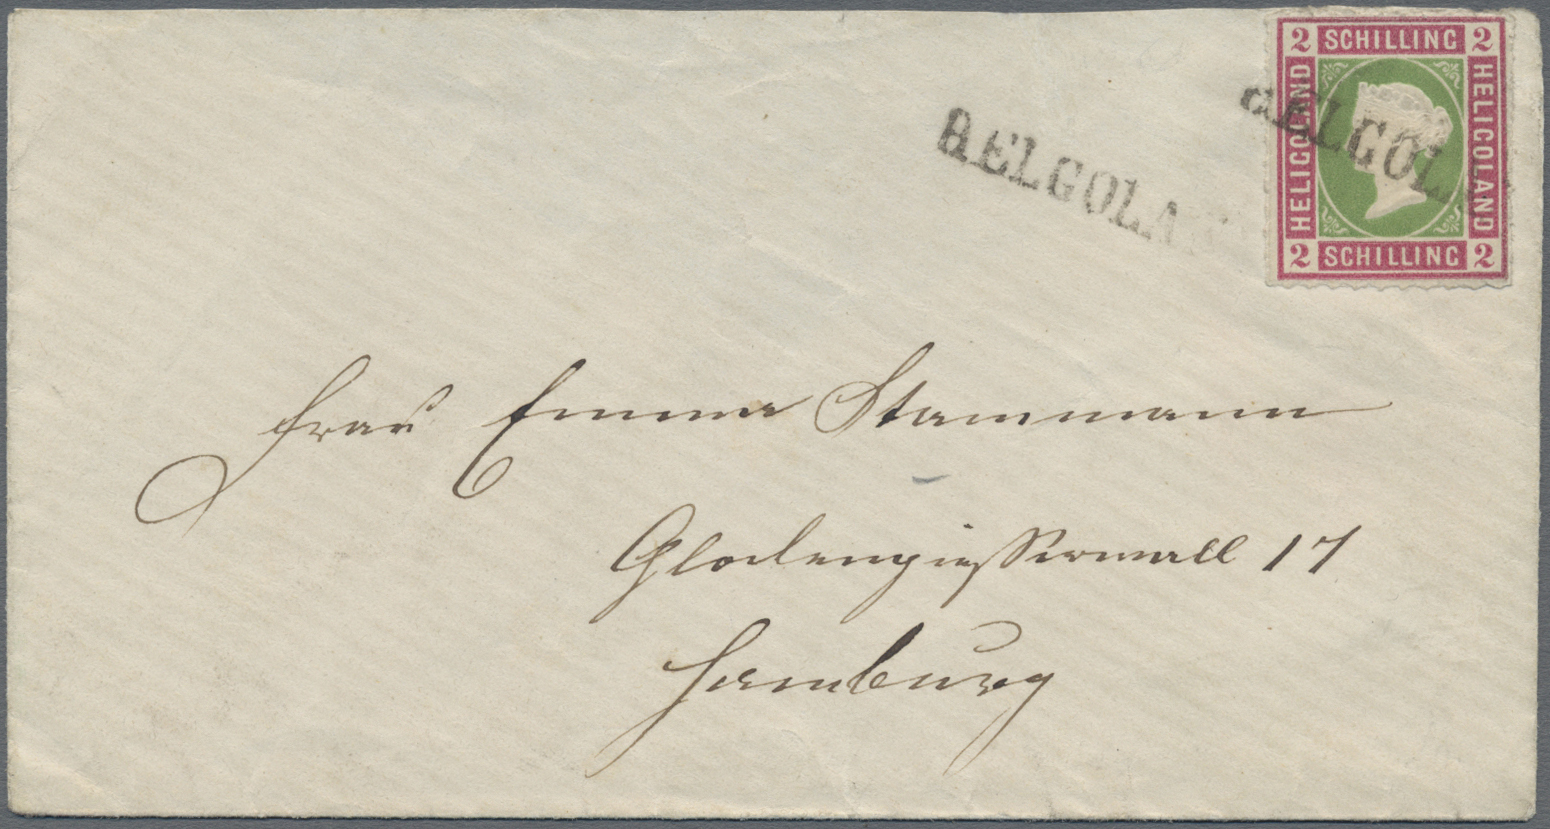 2 SCHILLING 2
HELIGOLAND
HELIGOLAND
2 SCHILLING 2
HELGOLAN
HELGOLA
Frau Emma Stammann
Glockengiesserwall 17
Hamburg